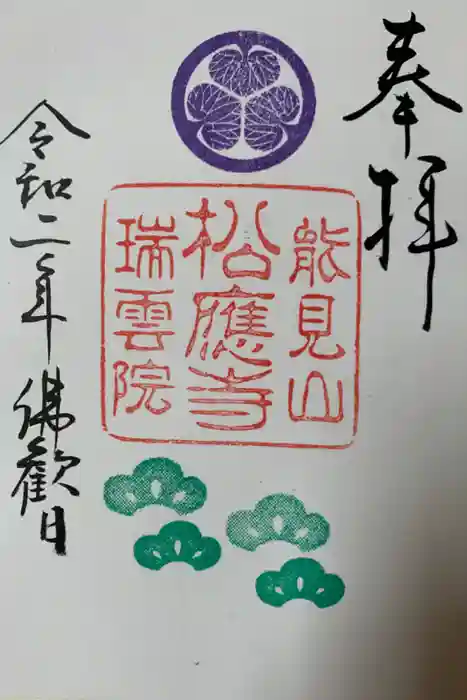 奉拝
能見山
松應寺
瑞雲院
令和二年佛歡日